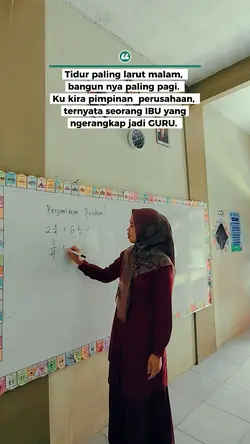 Tidur paling larut malam,
bangun nya paling pagi.
Ku kira pimpinan perusahaan,
ternyata seorang IBU yang
ngerangkap jadi GURU.
Penjumlahan Pecahan